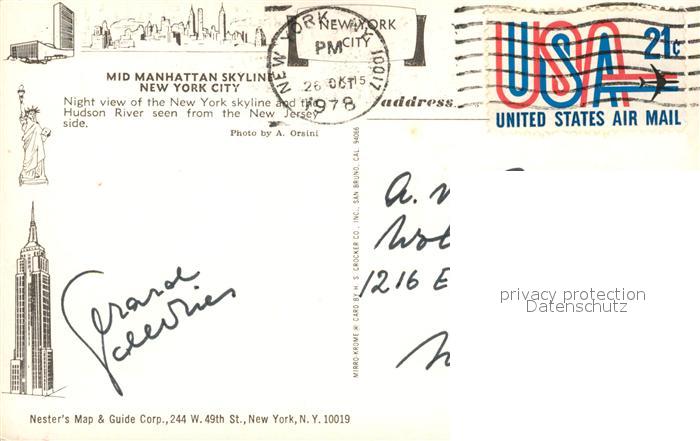 MID MANHATTAN SKYLINE
NEW YORK CITY
Night view of the New York skyline and the
Hudson River seen from the New Jersey
side.
Photo by A. Orsini
NEW YORK, N.Y. 10017
PM
26 OCT
1978
NEW YORK
CITY
address
USA 21c
UNITED STATES AIR MAIL
Gerard
deVries
MIRRO-KROME ® CARD BY H. S. CROCKER CO., INC., SAN BRUNO, CAL. 94066
A.
1216 E
privacy protection
Datenschutz
Nester's Map & Guide Corp., 244 W. 49th St., New York, N.Y. 10019